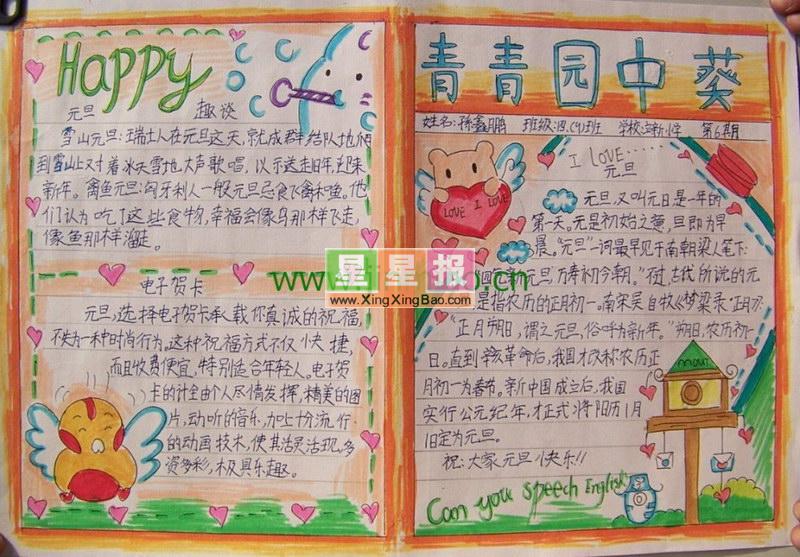 Happy
元旦 趣谈
雪山元旦:瑞士人在元旦这天,就成群结队地
到雪山上对着冰天雪地大声歌唱,以示送走旧年,迎来
新年。禽鱼元旦:匈牙利人一般元旦忌食飞禽和鱼。他
们认为吃了这些食物,幸福会像鸟那样飞走,
像鱼那样溜走。
电子贺卡
元旦,选择电子贺卡承载你真诚的祝福,
不失为一种时尚行为。这种祝福方式不仅快捷,
而且收费便宜,特别适合年轻人。电子贺
卡的计全由个人尽情发挥,精美的图
片,动听的音乐,加上流行
的动画技术,使其活灵活现,多
姿多彩,极具乐趣。
青青园中葵
姓名:孙鑫鹏 班级:四.(9)班 学校: 小学 第6期
I LOVE······
元旦
LOVE I LOVE
元旦,又叫元日是一年的
第一天。元是初始之意,旦即为早
晨。“元旦”一词最早见于南朝梁人笔下:
元旦,万寿初今朝。”不过,古代所说的元
是指农历的正月初一。南宋吴自牧《梦梁录·正月》:
“正月朔日,谓之元旦,俗呼为新年。”朔日,农历初一
日。直到辛亥革命后,我国才改称农历正
月初一为春节。新中国成立后,我国
实行公元纪年,才正式将阳历1月
1日定为元旦。
祝:大家元旦快乐!!
Can you speech English
www. .cn
星星报
www.XingXingBao.com